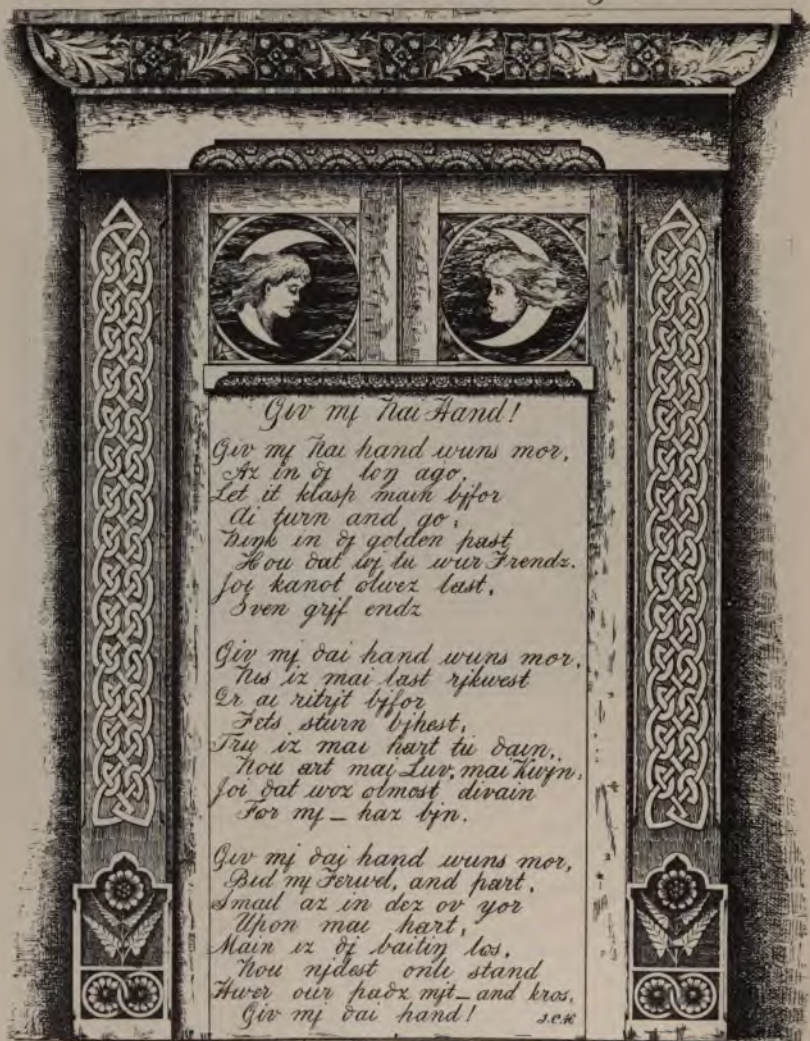 Giv mj ðai Hand!
Giv mj ðai hand wuns mor,
Az in ðj loŋ ago,
Let it klasp main bjfor
Ai turn and go;
Þiŋk in ðj golden past
Hou ðat wj tu wur Frendz.
Joi kanot olwez last,
Jven grjf endz
Giv mj ðai hand wuns mor,
Ðis iz mai last rjkwest
Er ai ritrjt bjfor
Fets sturn bjhest;
Tru iz mai hart tu ðain,
Ðou art mai Luv, mai Kwjn;
Joi ðat woz olmost divain
For mj — haz bjn.
Giv mj ðaj hand wuns mor,
Bid mj Ferwel, and part,
Smail az in dez ov yor
Upon mai hart;
Main iz ðj baitiŋ los,
Ðou njdest onli stand
Hwer our paðz mjt — and kros.
Giv mj ðai hand!
J.C.H